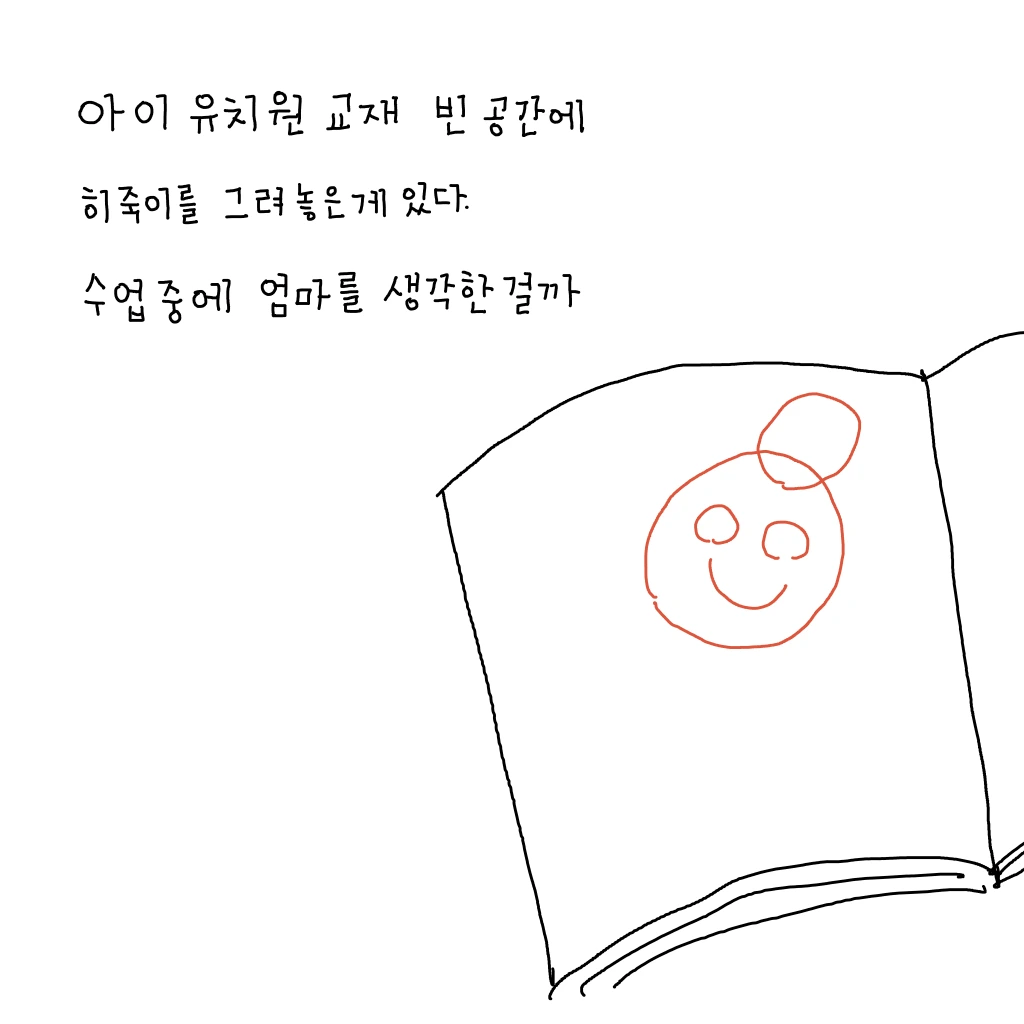 아이 유치원 교재 빈 공간에
히죽이를 그려놓은게 있다.
수업 중에 엄마를 생각한걸까